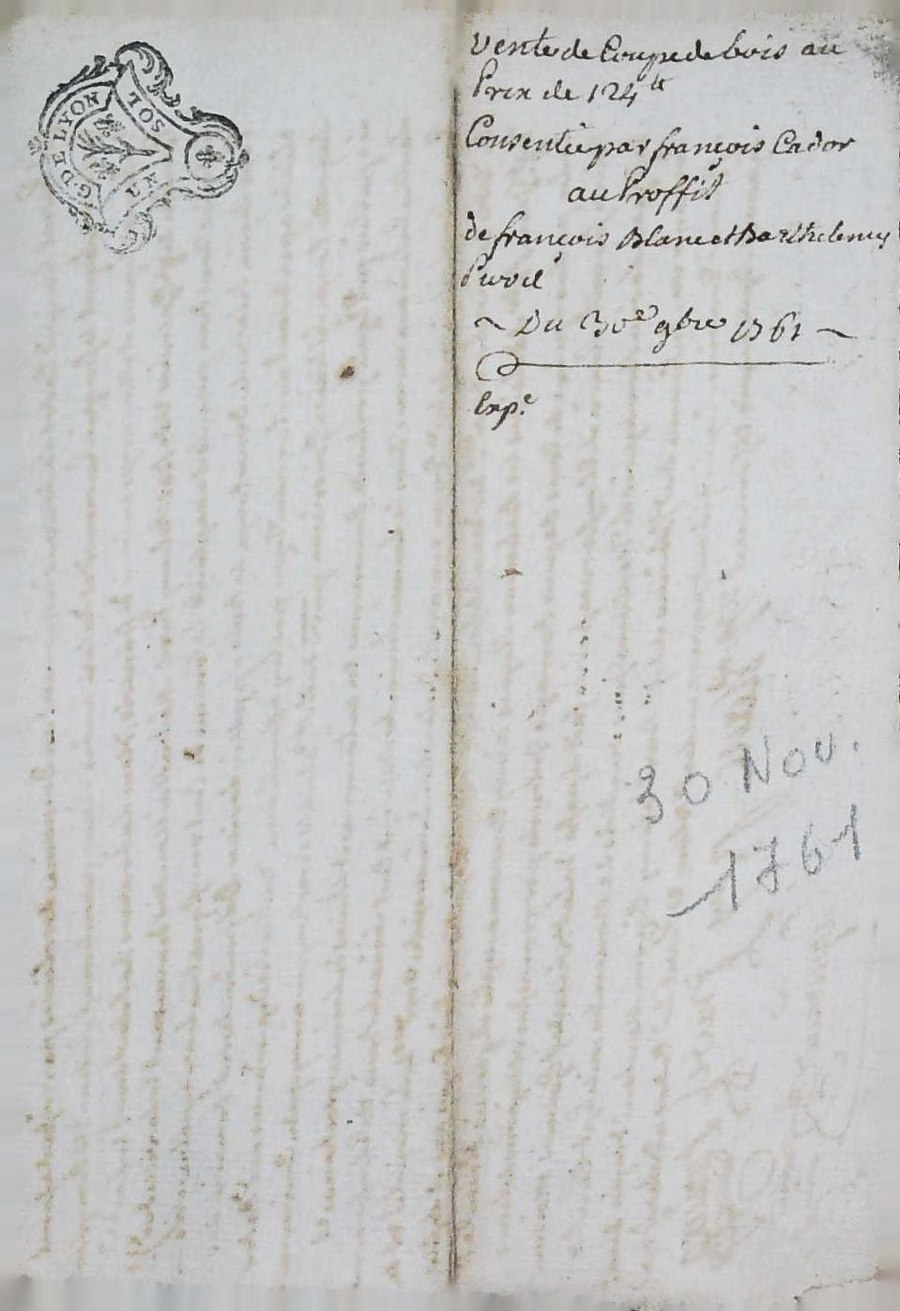 G. DE LYON
SOL
Vente de Coupe de bois au
Prix de 124 ₶
Consentie par françois Cador
au Proffit
de françois Blanc et Barthelemy
~ Du 30e 9bre 1761 ~
Exp.e
30 Nov.
1761